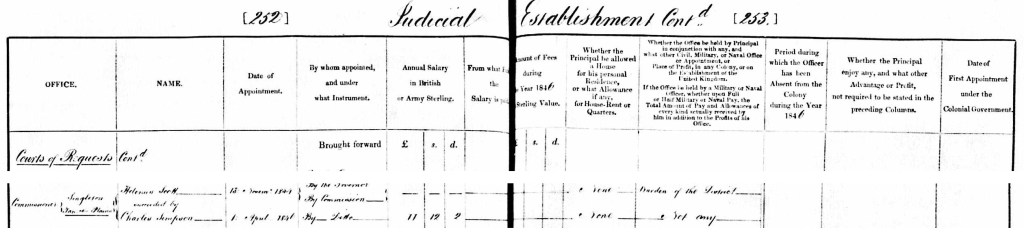 [252] Judicial Establishment Cont.d [253]
OFFICE.
NAME.
Date of
Appointment.
By whom appointed,
and under
what Instrument.
Annual Salary
in British
or Army Sterling.
From what
the
Salary is
ount of Fees
during
Year 1846
erling Value.
Whether the
Principal be allowed
a Home
for his personal
Residence,
or what Allowance
if any,
for Home-Rent or
Quarters.
Whether the Office be held by Principal
in conjunction with any, and
what other Civil, Military, or Naval Office
or Appointment, or
Place of Profit, in any Colony, or on
the Establishment of the
United Kingdom.
If the Office be held by a Military or Naval
Officer, whether upon Full
or Half Military or Naval Pay, the
Total Amount of Pay and Allowances of
every kind actually received by
him in addition to the Profits of his
Office.
Period during
which the Officer
has been
Absent from the
Colony
during the Year
1846
Whether the Principal
enjoy any, and what other
Advantage or Profit,
not required to be stated in the
preceding Columns.
Date of
First Appointment
under the
Colonial Government.
Brought forward £ s. d. £ s. d.
Courts of Requests Cont.d
Commissioner
Singleton
Helenus Scott
By the Governor
By Commission
none
Warden of the District
succeeded by
Charles Simpson
1 April 1846
By Ditto
11 12 2
none
not any